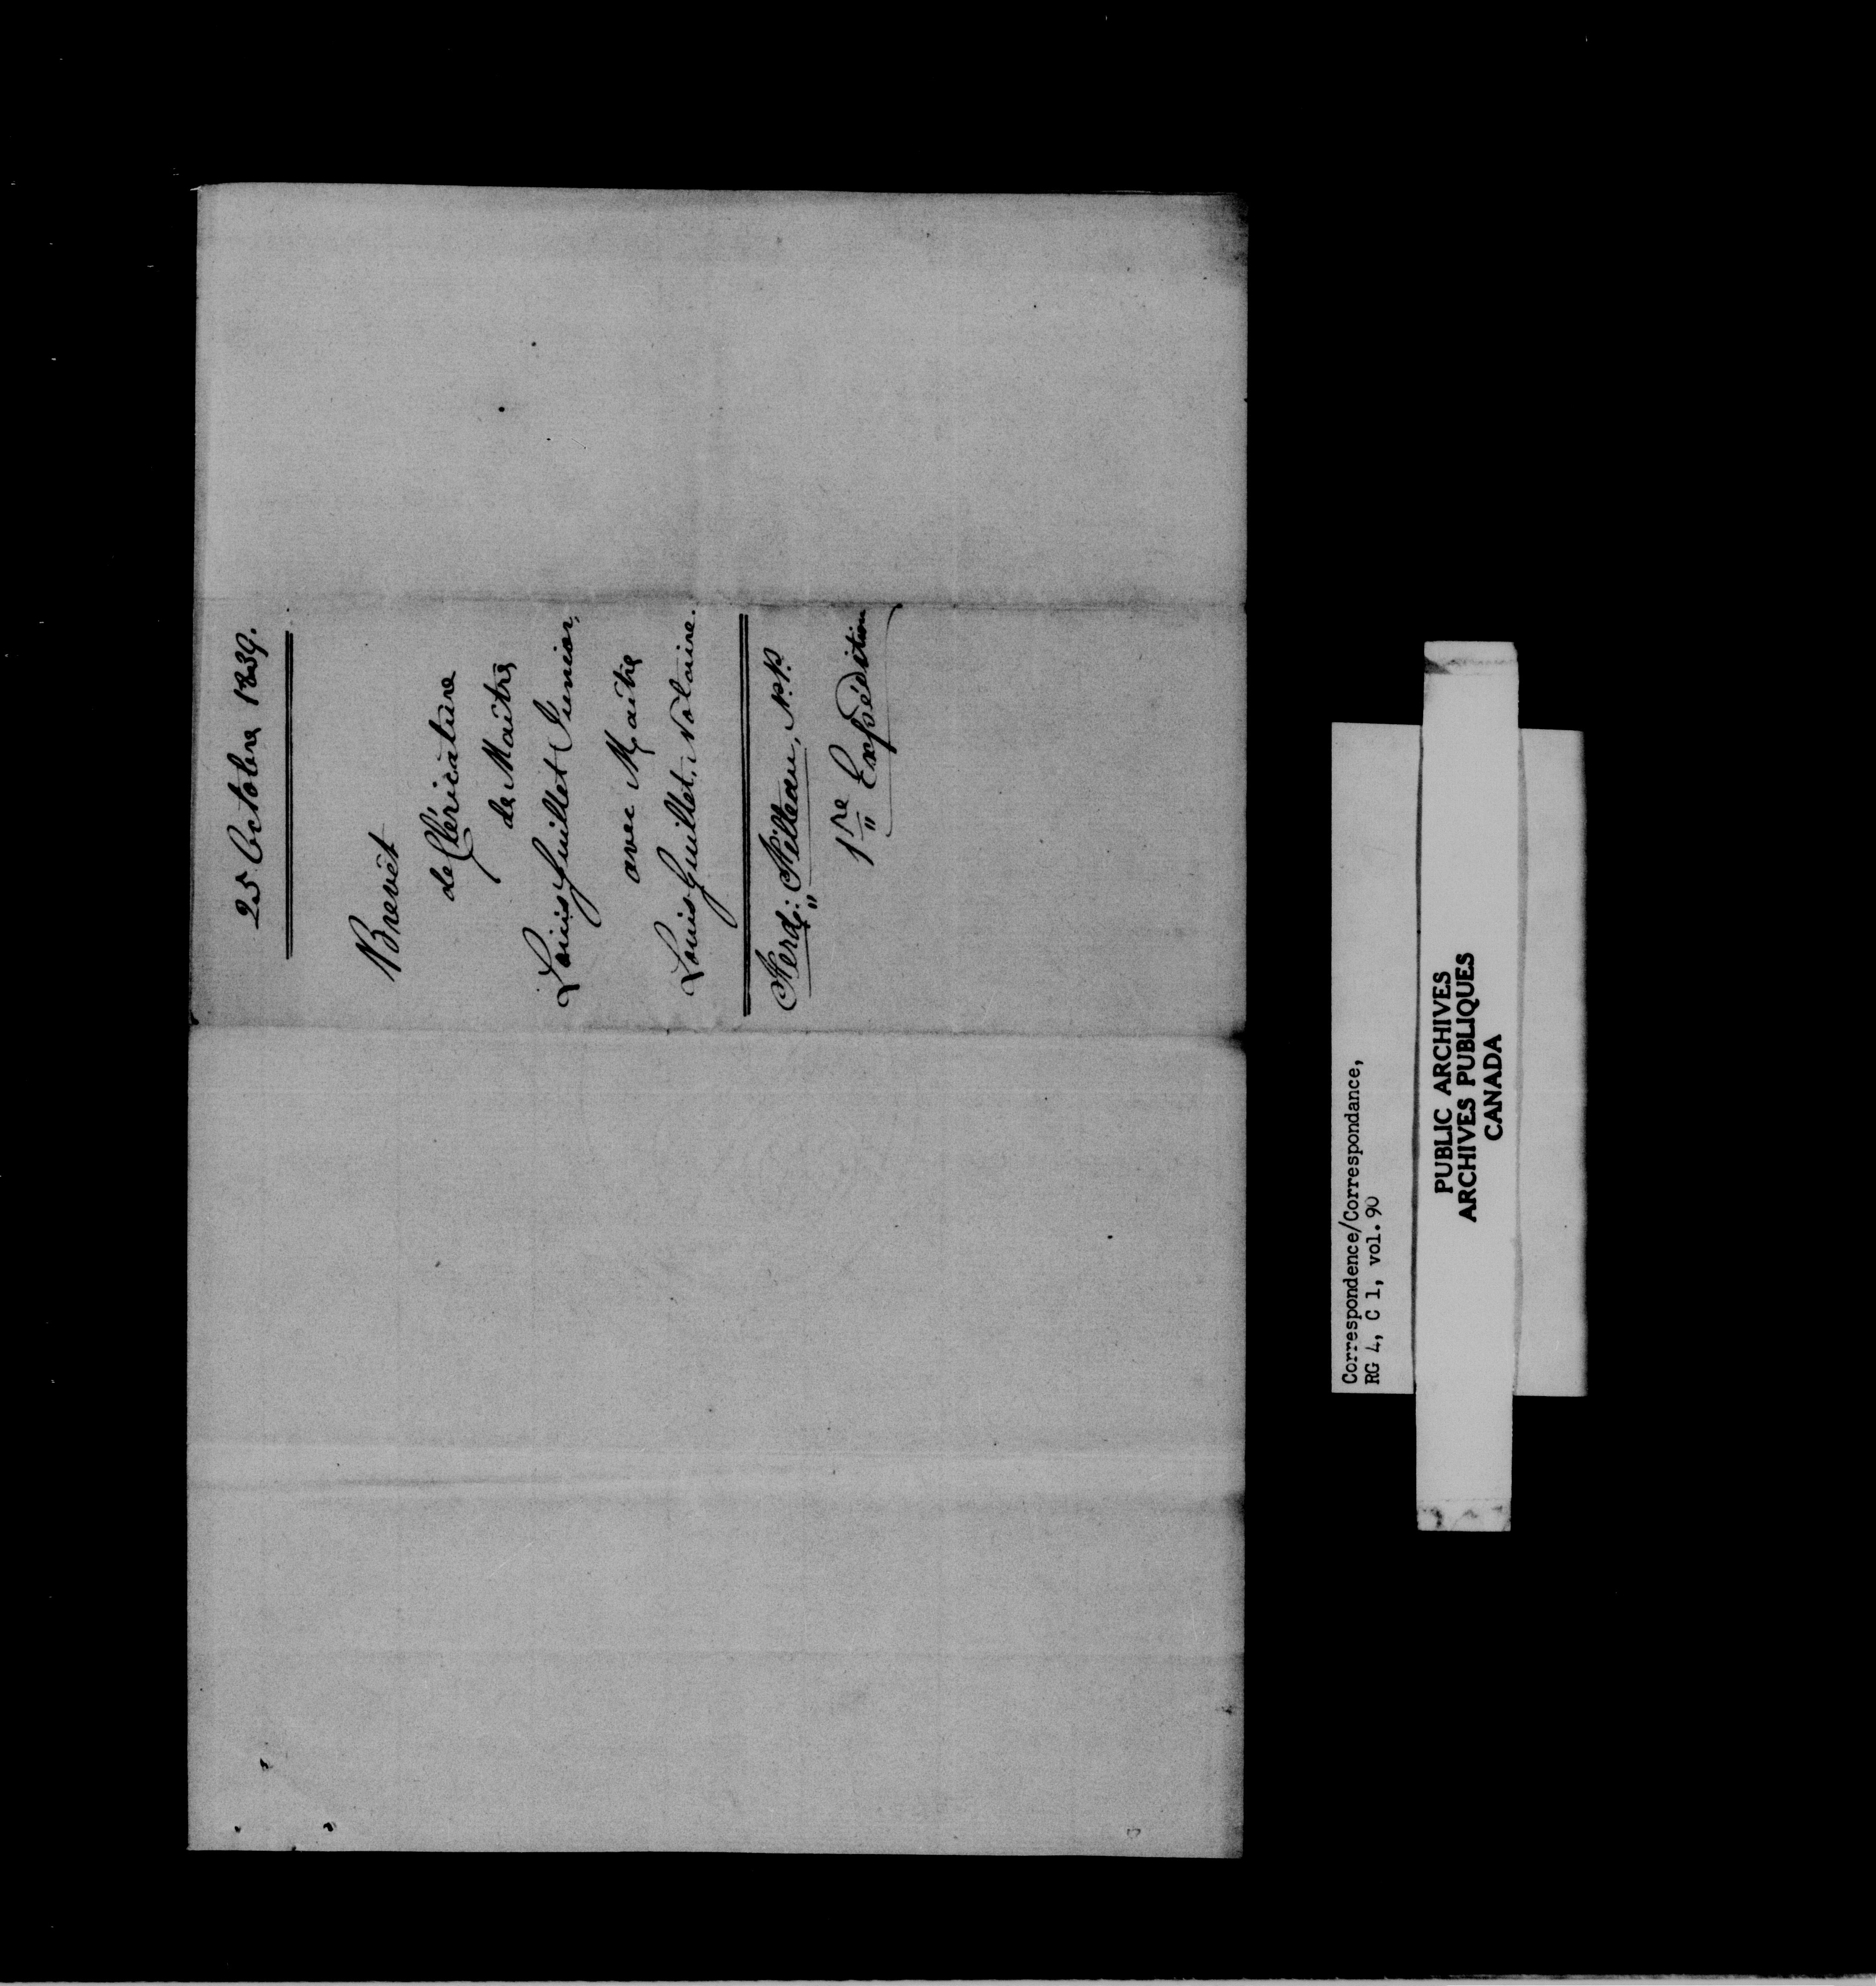 25 Octobre 1839.
Brevêt
de Cléricature
de Maître
Louis Guillet Junior,
avec Maître
Louis Guillet, Notaire.
Ferd: Filteau, N.P.
1re Expédition
Correspondence/Correspondance,
RG 4, C 1, vol. 90
PUBLIC ARCHIVES
ARCHIVES PUBLIQUES
CANADA